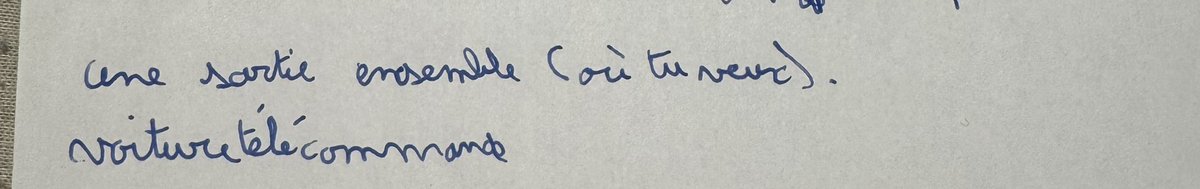 une sortie ensemble (où tu veux).
voiture télécommande